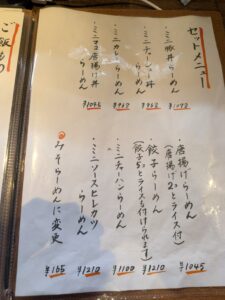 セットメニュー
・ミニ豚丼らーめん
¥1078
・ミニチャーシュー丼
らーめん
¥968
・ミニカレーらーめん
¥968
・ミニマヨ唐揚げ丼
らーめん
¥1045
・唐揚げらーめん
(唐揚げ2ことライス付)
¥1045
・餃子らーめん
(餃子5ことライスも付けられます)
¥1210
・ミニチャーハンらーめん
¥1100
・ミニソースヒレカツ
らーめん
¥1210
みそらーめんに変更
¥165
ご飯もの